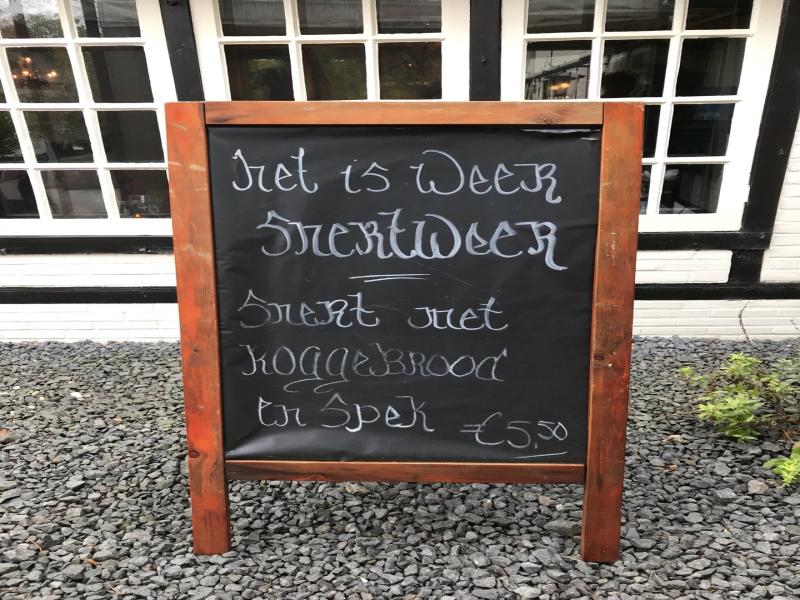 Het is weer
Snertweer
Snert met
Roggebrood
en Spek €5,50